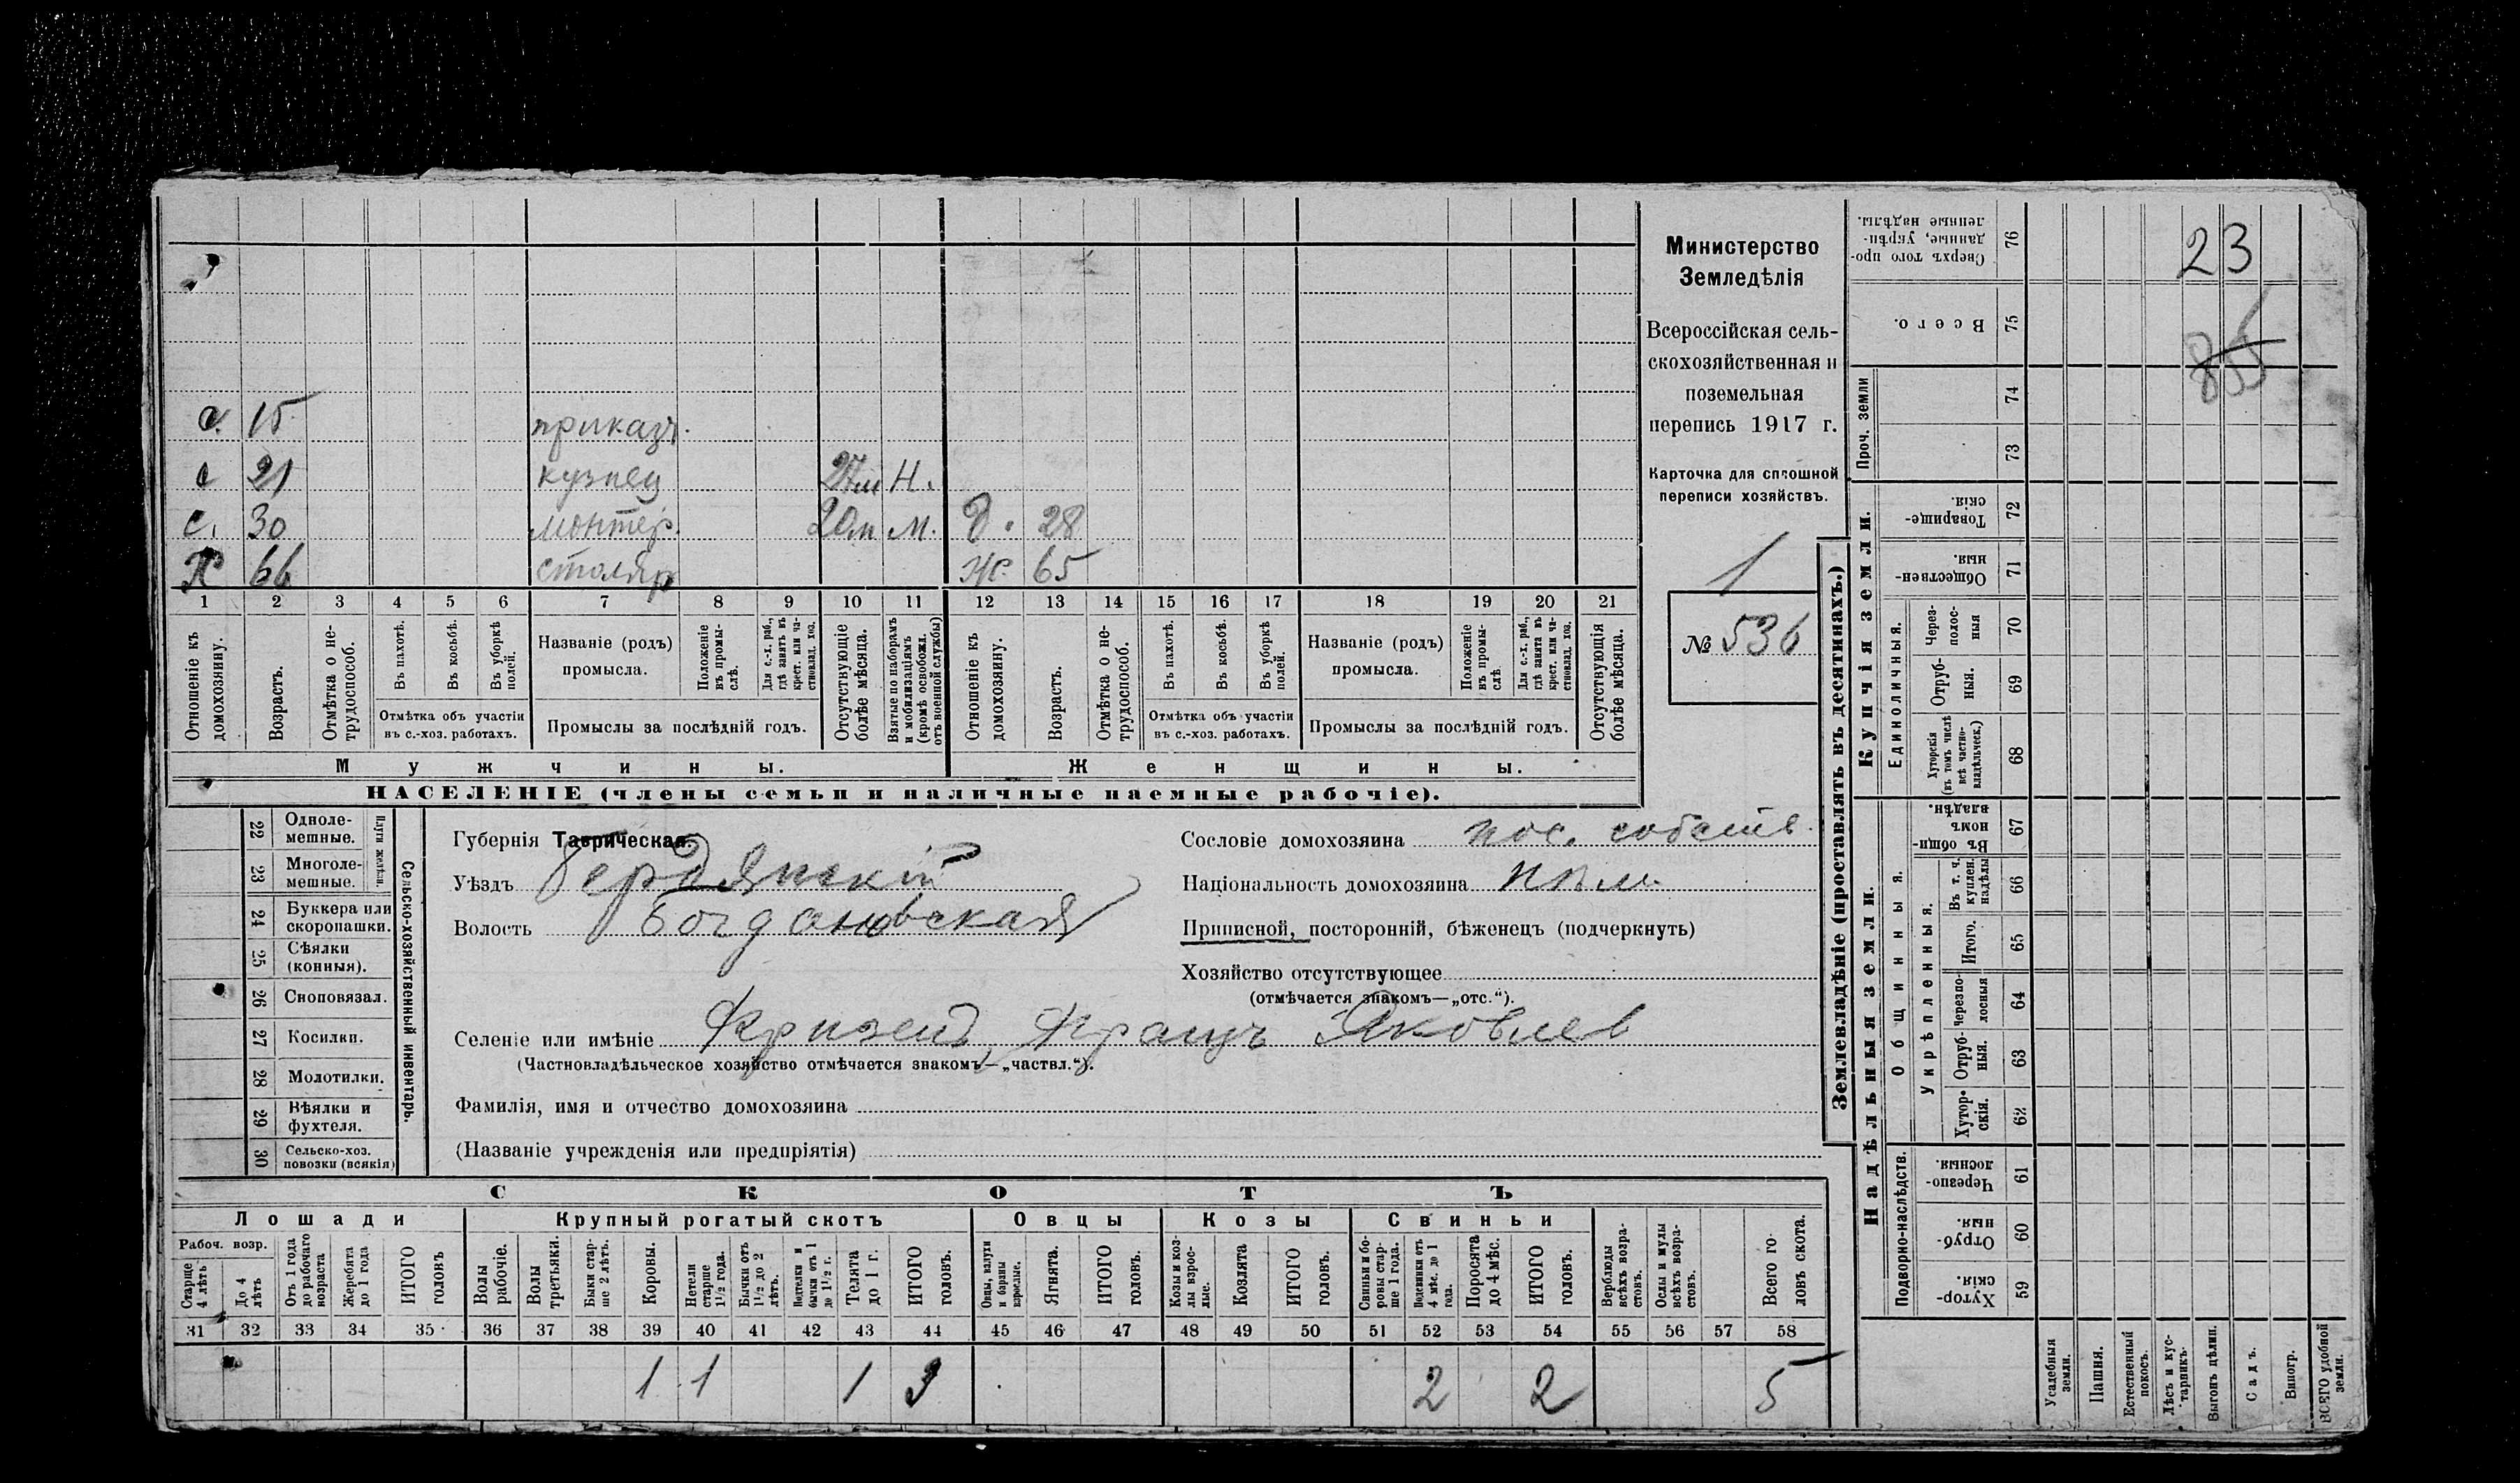 23
855
Министерство
Земледѣлія
Всероссійская сель-
скохозяйственная и
поземельная
перепись 1917 г.
Карточка для сплошной
переписи хозяйствъ.
1
№ 536
с. 15 приказч.
с 21 кузнец 27м Н.
с. 30 монтер. 20м м. д. 28
Х 66 столяр ж. 65
1 2 3 4 5 6 7 8 9 10 11 12 13 14 15 16 17 18 19 20 21
Отношеніе къ домохозяину.
Возрастъ.
Отмѣтка о не-трудоспособ.
Въ пахотѣ.
Въ косьбѣ.
Въ уборкѣ полей.
Отмѣтка объ участіи въ с.-хоз. работахъ.
Названіе (родъ) промысла.
Положеніе въ промы-слѣ.
Для с.-х. раб., гдѣ занятъ въ крест. или ча-стновлад. хоз.
Промыслы за послѣдній годъ.
Отсутствующіе болѣе мѣсяца.
Взятые по наборамъ и мобилизаціямъ (кромѣ освобожд. отъ военной службы)
Отношеніе къ домохозяину.
Возрастъ.
Отмѣтка о не-трудоспособ.
Въ пахотѣ.
Въ косьбѣ.
Въ уборкѣ полей.
Отмѣтка объ участіи въ с.-хоз. работахъ.
Названіе (родъ) промысла.
Положеніе въ промы-слѣ.
Для с.-х. раб., гдѣ занята въ крест. или ча-стновлад. хоз.
Промыслы за послѣдній годъ.
Отсутствующія болѣе мѣсяца.
Мужчины.
Женщины.
НАСЕЛЕНІЕ (члены семьи и наличные наемные рабочіе).
22 Одноле-мешные.
23 Многоле-мешные.
Плуги желѣзн.
24 Буккера или скоропашки.
25 Сѣялки (конныя).
26 Сноповязал.
27 Косилки.
28 Молотилки.
29 Вѣялки и фухтеля.
30 Сельско-хоз. повозки (всякія)
Сельско-хозяйственный инвентарь.
Губернія Таврическая.
Уѣздъ Бердянскій
Волость Богдановская
Селеніе или имѣніе Кризен, Франц Яковлев
(Частновладѣльческое хозяйство отмѣчается знакомъ—„частвл.“).
Фамилія, имя и отчество домохозяина
(Названіе учрежденія или предпріятія)
Сословіе домохозяина пос. собств.
Національность домохозяина нѣм.
Приписной, посторонній, бѣженецъ (подчеркнуть)
Хозяйство отсутствующее
(отмѣчается знакомъ—„отс.“).
СКОТЪ
Лошади
Крупный рогатый скотъ
Овцы
Козы
Свиньи
Рабоч. возр.
Старше 4 лѣтъ
До 4 лѣтъ
Отъ 1 года до рабочаго возраста
Жеребята до 1 года
ИТОГО головъ
Волы рабочіе.
Волы третьяки.
Быки стар-ше 2 лѣтъ.
Коровы.
Нетели старше 1½ года.
Бычки отъ 1½ до 2 лѣтъ.
Подтелки и бычки отъ 1 до 1½ г.
Телята до 1 г.
ИТОГО головъ.
Овцы, валухи и бараны взрослые.
Ягнята.
ИТОГО головъ.
Козы и коз-лы взрос-лые.
Козлята
ИТОГО головъ.
Свиньи и бо-ровы стар-ше 1 года.
Подсвинки отъ 4 мѣс. до 1 года.
Поросята до 4 мѣс.
ИТОГО головъ.
Верблюды всѣхъ возра-стовъ.
Ослы и мулы всѣхъ возра-стовъ.
Всего го-ловъ скота.
31 32 33 34 35 36 37 38 39 40 41 42 43 44 45 46 47 48 49 50 51 52 53 54 55 56 57 58
1 1 1 3 2 2 5
Землевладѣніе (проставлять въ десятинахъ.)
Сверхъ того про-данные, укрѣп-ленные надѣлы. 76
Всего. 75
Проч. земли
74
73
Купчія земли.
Товарище-скія. 72
Обществен-ныя. 71
Единоличныя.
Через-полос-ныя 70
Отруб-ныя. 69
Хуторскія (въ томъ числѣ всѣ частно-владѣльческ.) 68
Надѣльныя земли.
Общинныя.
Въ общин-номъ владѣн. 67
Укрѣпленныя.
Въ т. ч. куплен. надѣлы 66
Итого. 65
Черезпо-лосныя 64
Отруб-ныя. 63
Хутор-скія. 62
Подворно-наслѣдств.
Черезпо-лосныя. 61
Отруб-ныя. 60
Хутор-скія. 59
Усадебныя земли.
Пашня.
Естественный покосъ.
Лѣсъ и кус-тарникъ.
Выгонъ цѣлин.
Садъ.
Виногр.
ВСЕГО удобной земли.